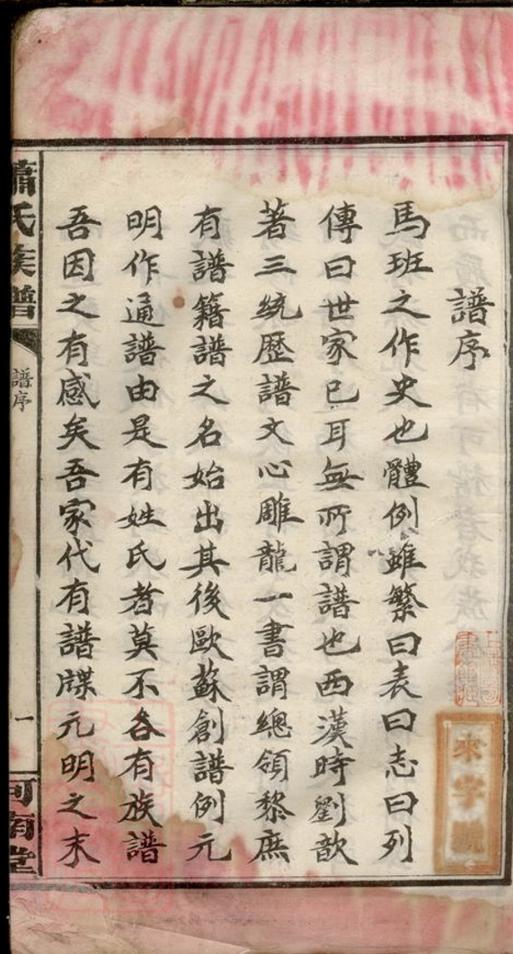 譜序
馬班之作史也體例雖繁曰表曰志曰列
傳曰世家已耳無所謂譜也西漢時劉歆
著三統歷譜文心雕龍一書謂總領黎庶
有譜籍譜之名始出其後歐蘇創譜例元
明作通譜由是有姓氏者莫不各有族譜
吾因之有感矣吾家代有譜牒元明之末
蕭氏族譜
譜序
一
河南堂
來字號